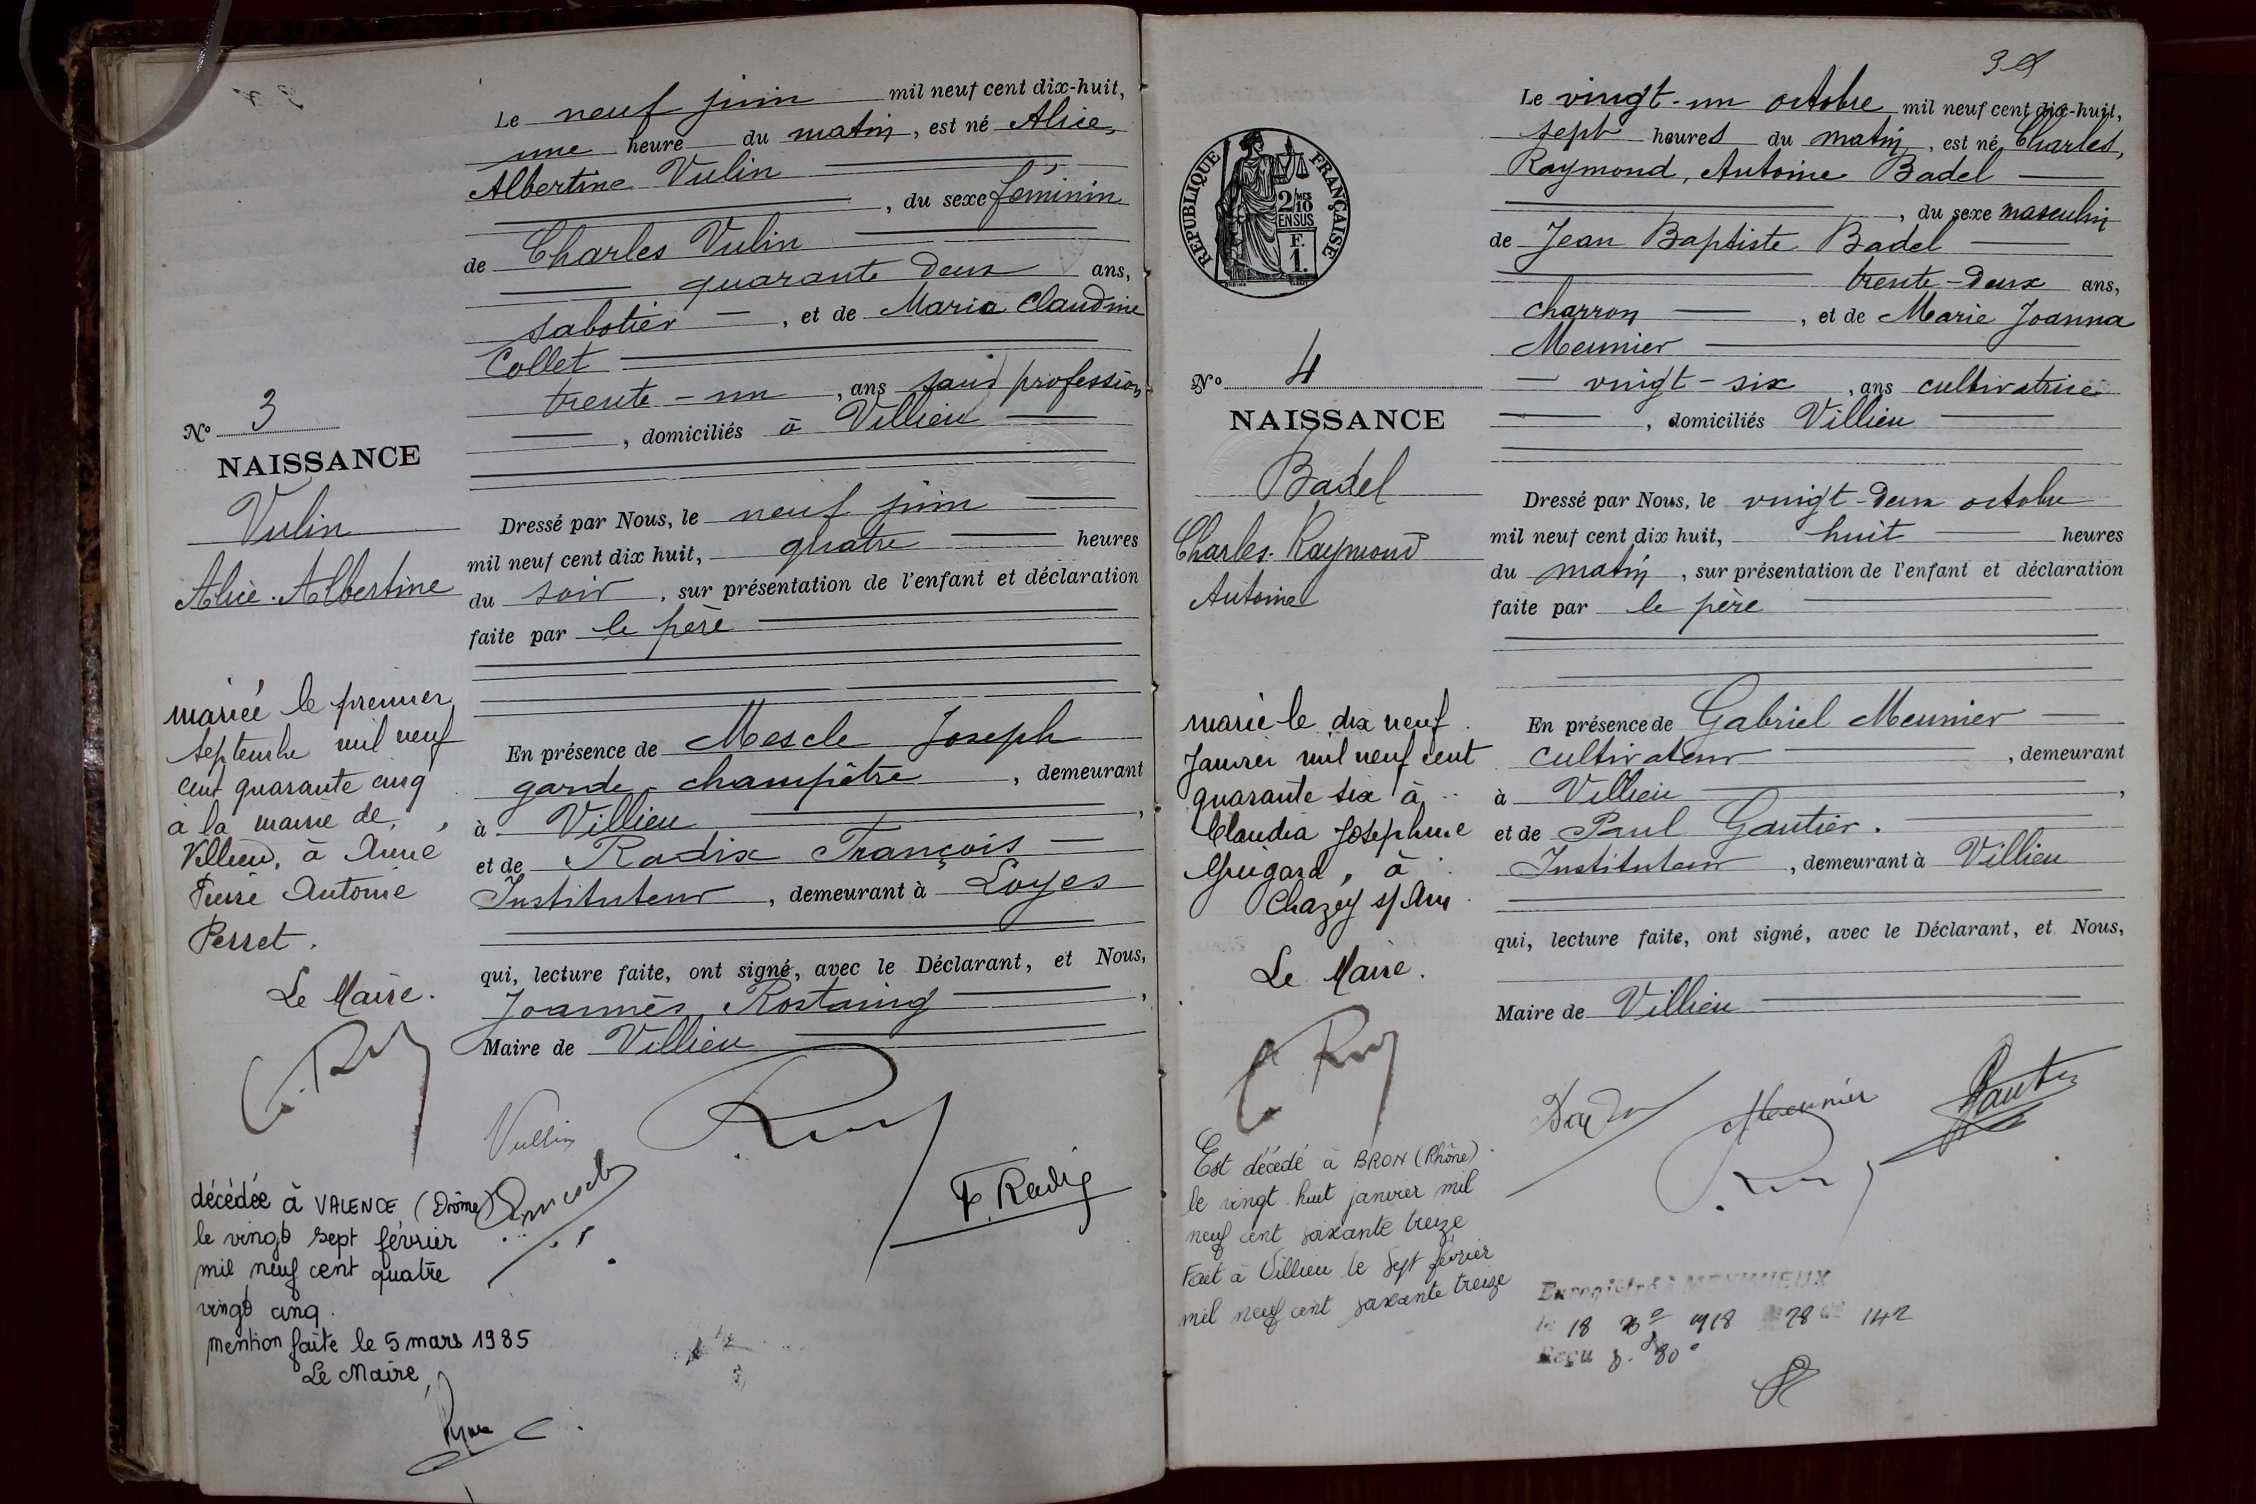 Le neuf juin mil neuf cent dix-huit,
une heure du matin, est né Alice,
Albertine Vulin
, du sexe féminin
de Charles Vulin
quarante deux ans,
sabotier, et de Marie Claudine
Collet
trente-un, ans sans profession
, domiciliés à Villieu
No 3
NAISSANCE
Vulin
Alice. Albertine
Dressé par Nous, le neuf juin
mil neuf cent dix huit, quatre heures
du soir, sur présentation de l'enfant et déclaration
faite par le père
En présence de Mescle Joseph
garde-champêtre, demeurant
à Villieu,
et de Radix François
Instituteur, demeurant à Loyes
qui, lecture faite, ont signé, avec le Déclarant, et Nous,
Joannès Rostaing,
Maire de Villieu
mariée le premier
septembre mil neuf
cent quarante cinq
à la mairie de
Villieu, à Aimé
Pierre Antoine
Perret.
Le Maire.
Vullin
F. Radix
décédée à VALENCE (Drôme)
le vingt sept février
mil neuf cent quatre
vingt cinq.
mention faite le 5 mars 1985
Le Maire,
Le vingt-un octobre mil neuf cent dix-huit,
sept heures du matin, est né Charles,
Raymond, Antoine Badel
, du sexe masculin
de Jean Baptiste Badel
trente-deux ans,
charron, et de Marie Joanna
Meunier
vingt-six, ans cultivatrice
, domiciliés Villieu
REPUBLIQUE FRANÇAISE
2/10 MES
EN SUS
F.
1.
No 4
NAISSANCE
Badel
Charles. Raymond
Antoine
Dressé par Nous, le vingt-deux octobre
mil neuf cent dix huit, huit heures
du matin, sur présentation de l'enfant et déclaration
faite par le père
En présence de Gabriel Meunier
cultivateur, demeurant
à Villieu,
et de Paul Gautier.
Instituteur, demeurant à Villieu
qui, lecture faite, ont signé, avec le Déclarant, et Nous,
Maire de Villieu
marié le dix neuf
Janvier mil neuf cent
quarante six à
Claudia Joséphine
Guigard, à
Chazey s/Ain
Le Maire.
Meunier
Gautier
Est décédé à BRON (Rhône)
le vingt huit janvier mil
neuf cent soixante treize
Fait à Villieu le sept février
mil neuf cent soixante treize
Enregistré à MEXIMIEUX
le 18 1918 28 142
Reçu